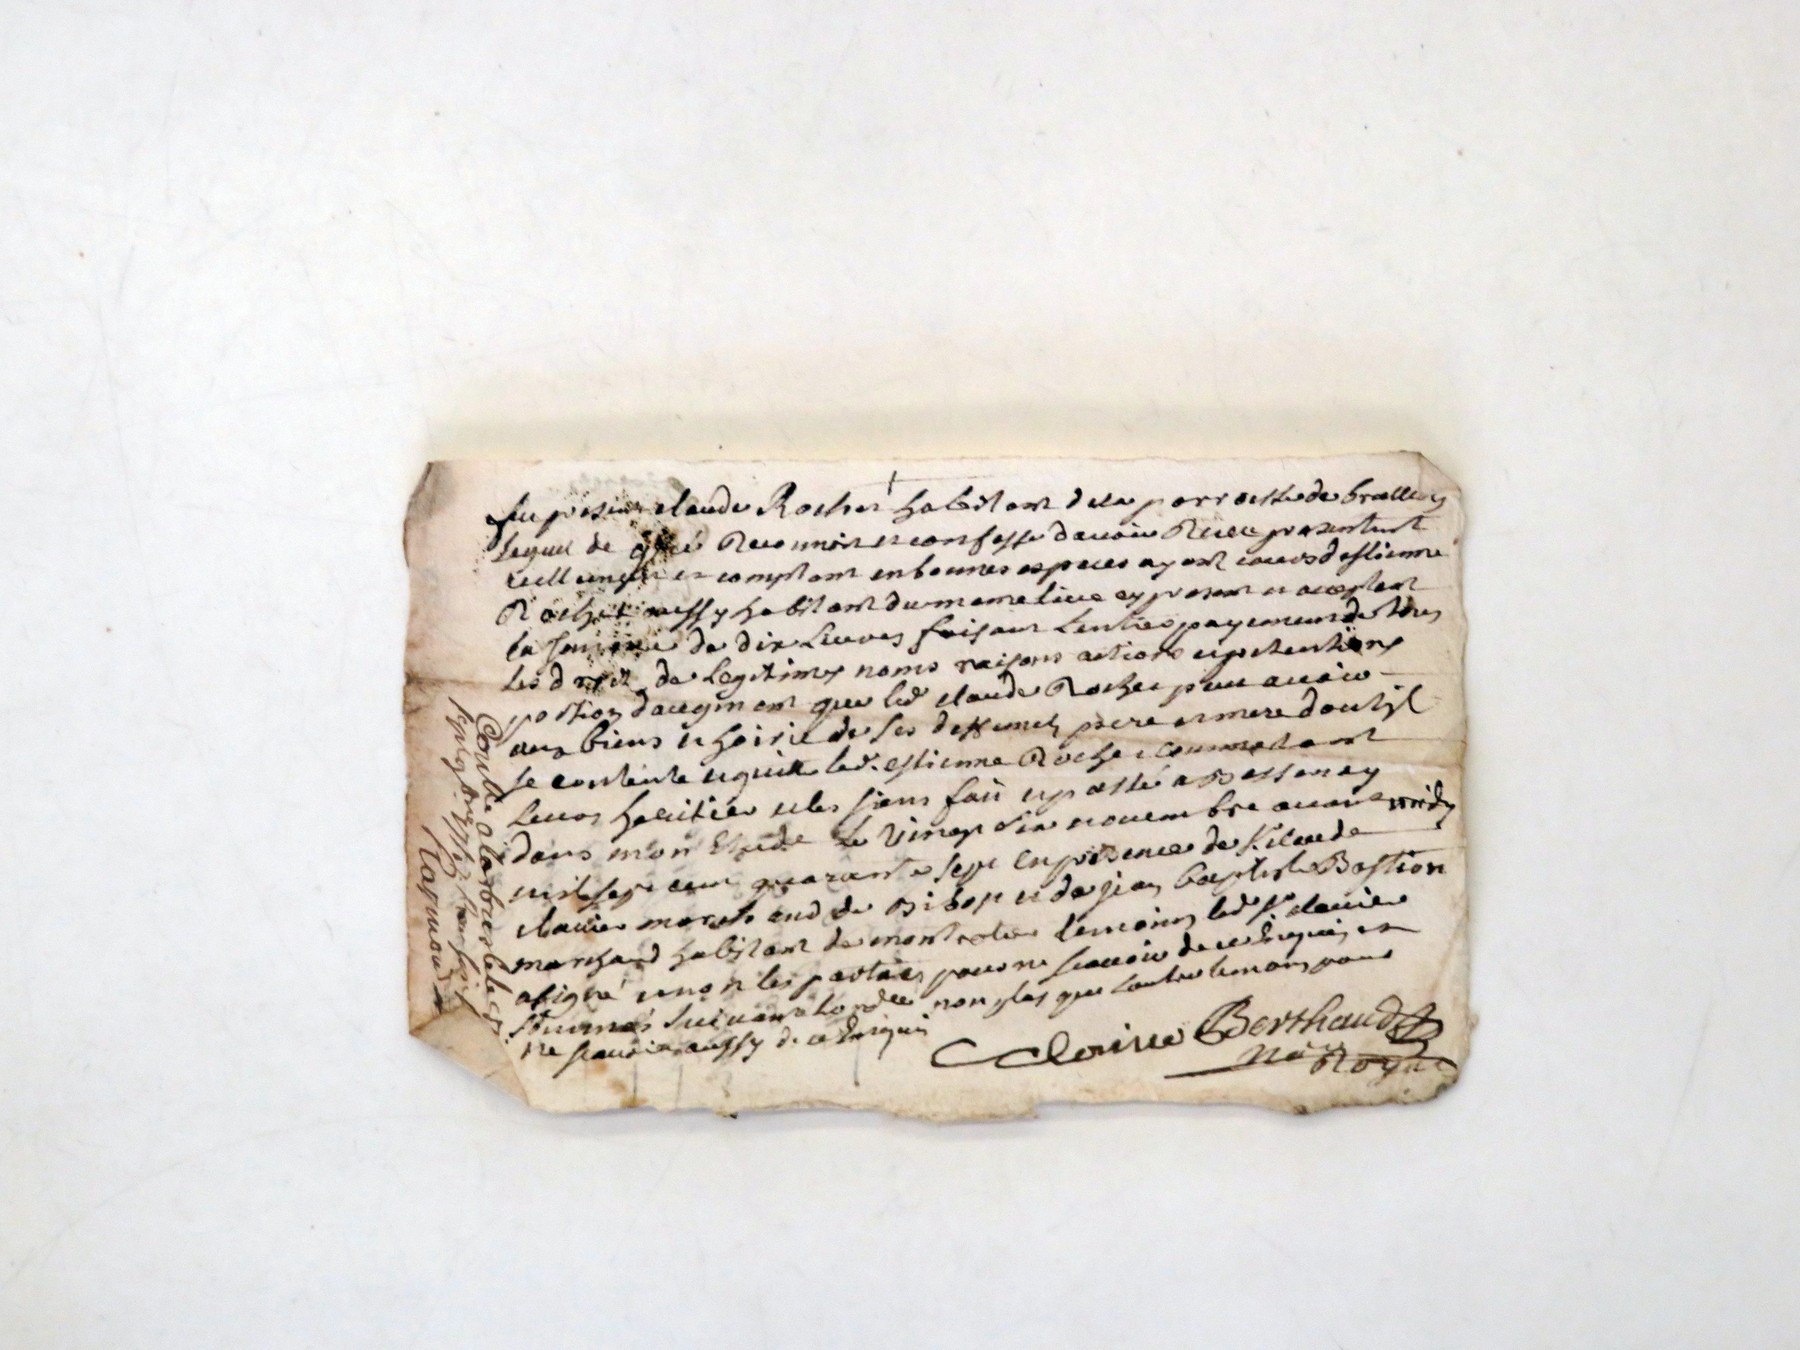 fut presant claude Rochet habitant de la parroesse de brullioy
lequel de gré Reconnoit et confesse davoir Receu presentement
reellement et comptant en bonnes especes ayant cours destienne
Rochet aussy habitant du meme lieu cy present et acceptant
la somme de dix livres faisant lentier payement de tous
les droit de legitimes noms raisons actions et pretentions
portion daugment que led claude Rochet peut avoir
aux biens et hoirie de ses deffunct pere et mere dont jl
se contente et quitte led. estienne Rochet
leurs heritier et les siens fait et passé a Bessenay
dans mon Etude le vingt six novembre avant midy
mil sept cent quarante sept en presence de sr. claude
clavier marchand de Bibost et de jean baptiste Bastion
marchand habitant de montrotier temoins led sr clavier
a signé et non les parties pour ne scavoir de ce Enquis et
sommés suivant lordce non plus que lautre temoin pour
ne scavoir aussy de ce Enquis
Clavier Berthaud
Nore Royal
Controllé a larbresle le